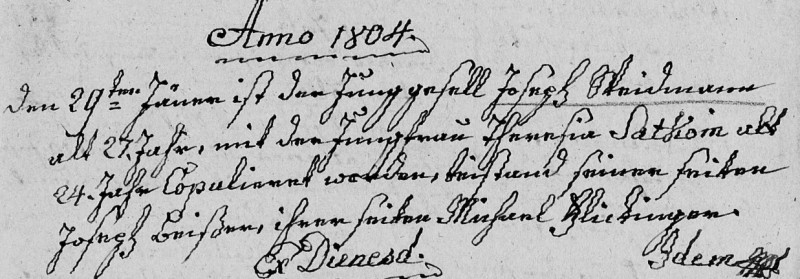 Anno 1804.
Den 29ten Jäner ist der Junggesell Joseph Weidmann
alt 27. Jahr, mit der Jungfrau Theresia alt
24. Jahr Copalieret worden, beistand seiner seiten
Joseph Beißer, ihrer seiten Michael Flickinger.
Ex Dienesd. Idem